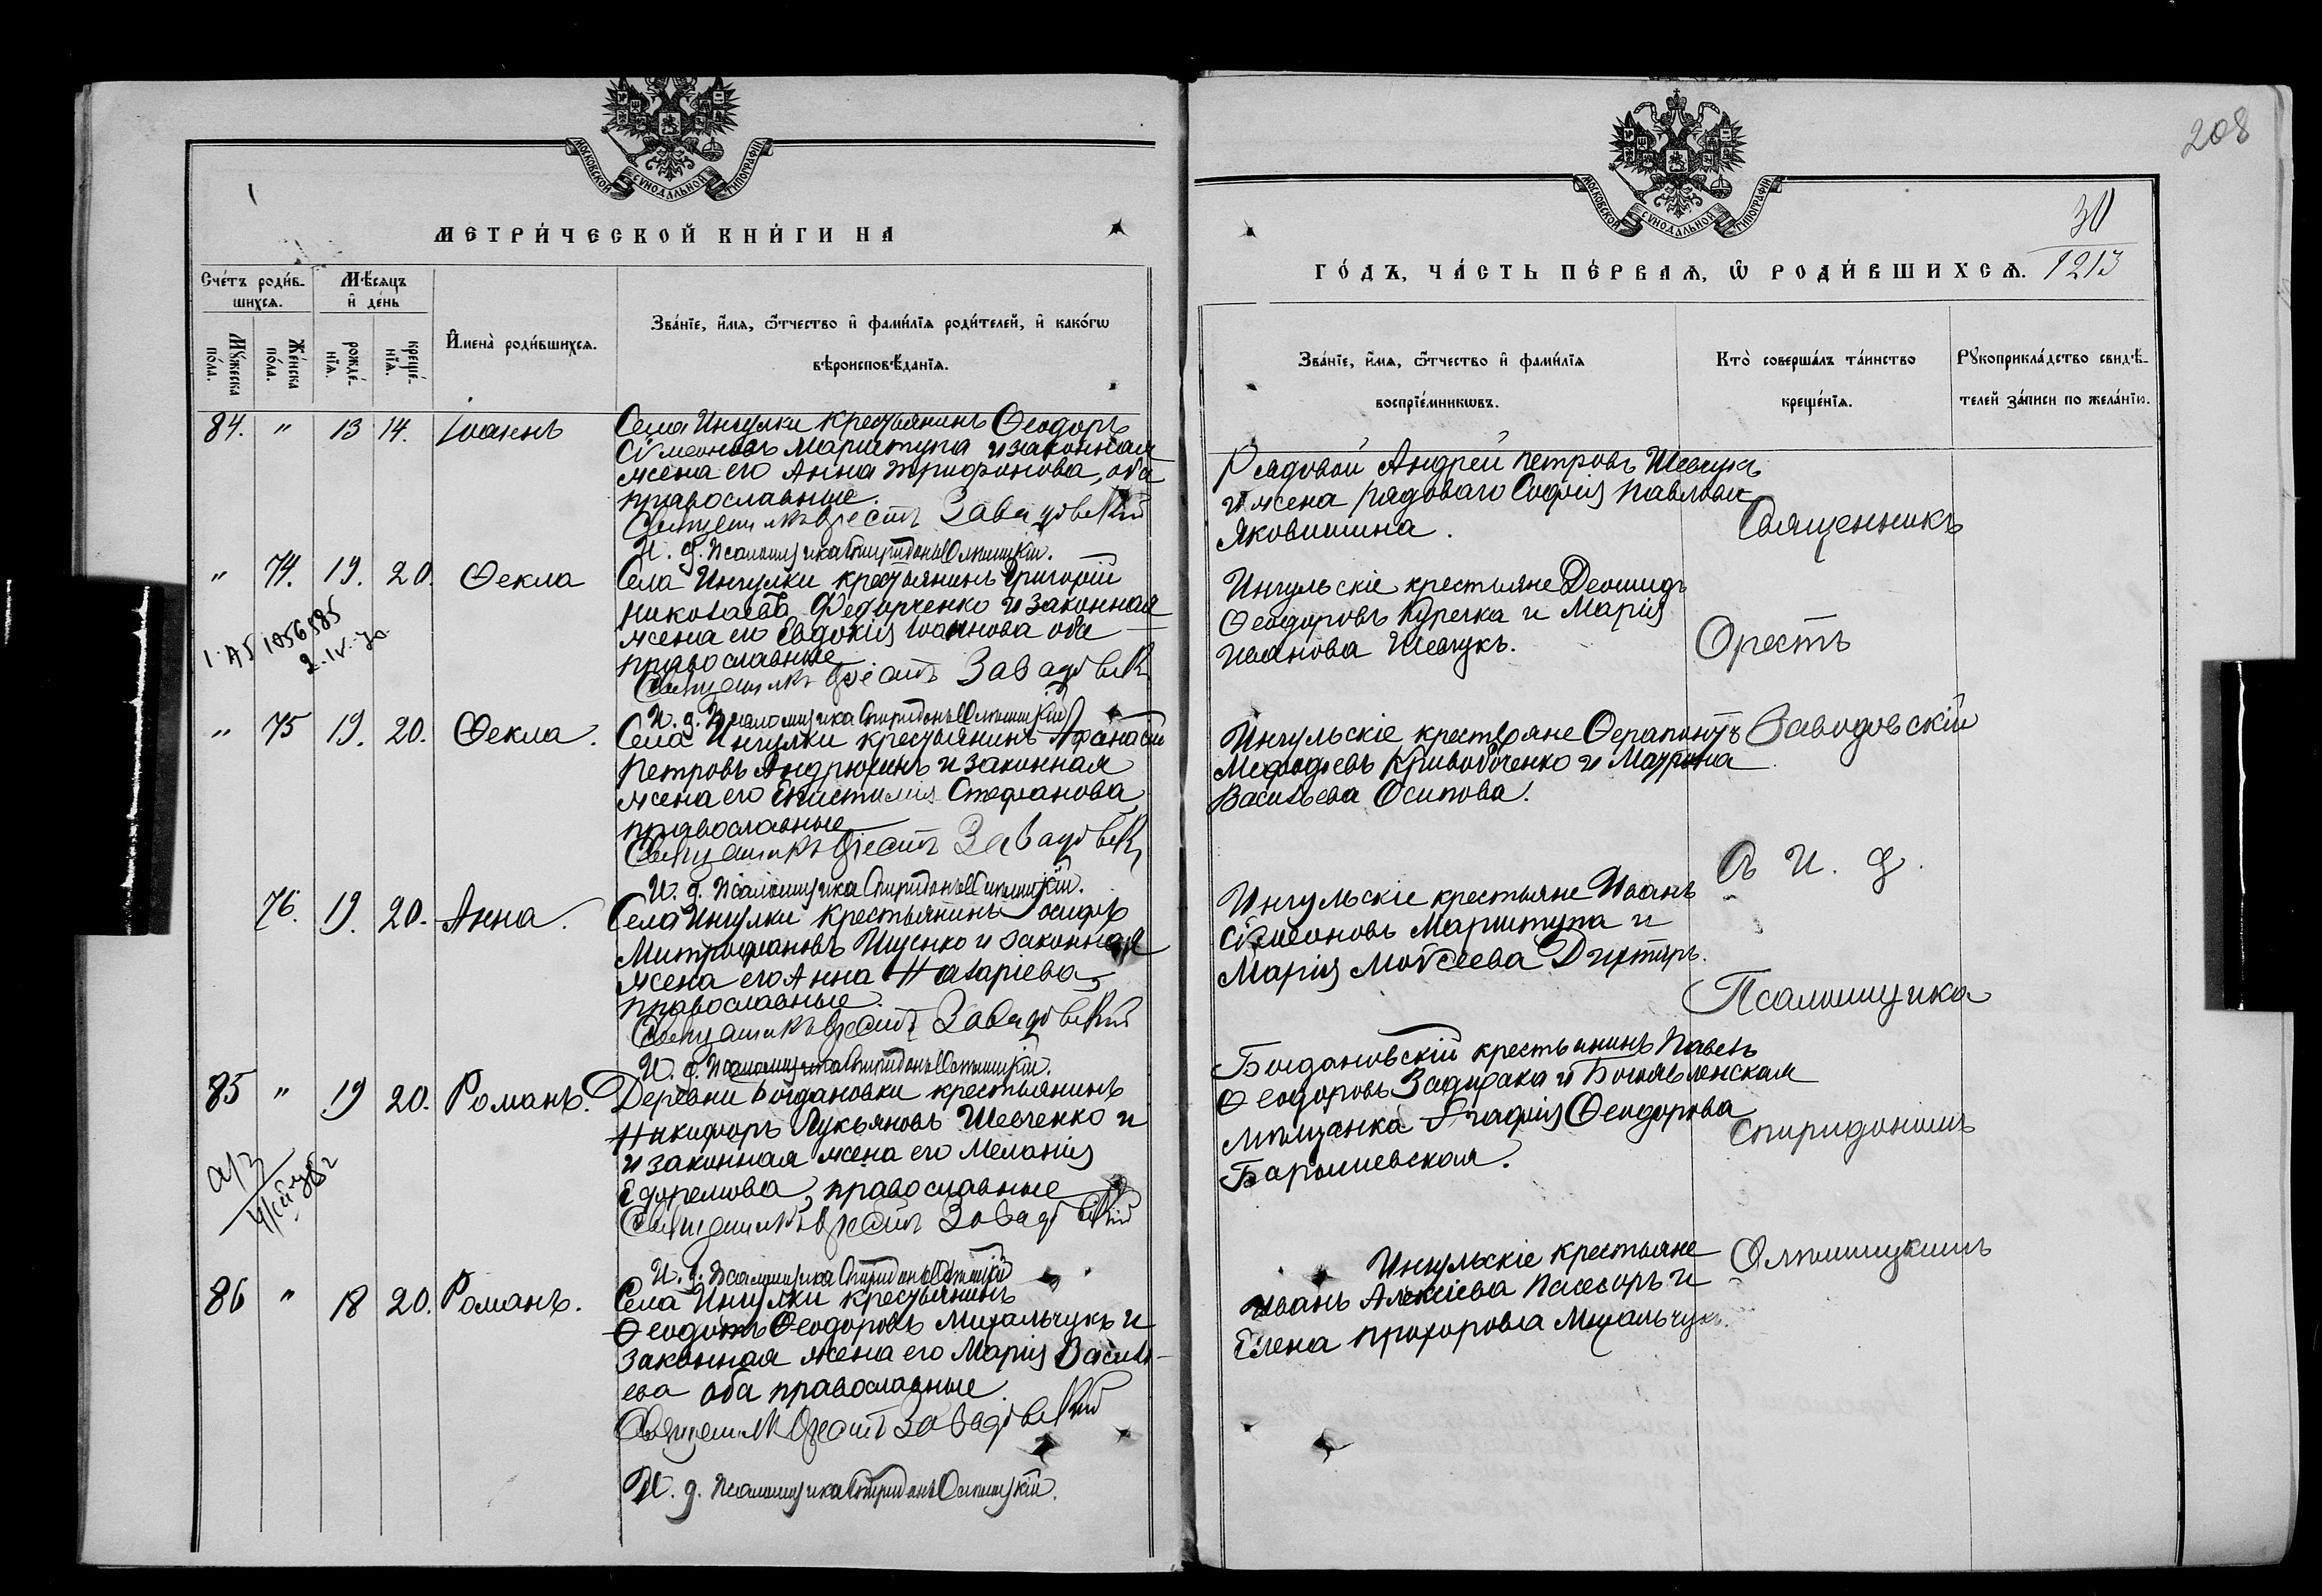 208
МОСКОВСКОЙ СУНОДАЛЬНОЙ ТИПОГРАФІИ
МЕТРИ́ЧЕСКОЙ КНИ́ГИ НА
Сче́тъ роди́в-
шихсѧ.
Мѣ́сѧцъ
и҆ де́нь
Мꙋ́жеска
по́ла.
Же́нска
по́ла.
рожде́-
нїѧ.
креще́-
нїѧ.
И҆мена̀ роди́вшихсѧ.
Зва́нїе, и҆́мѧ, ѻ҆́тчество и҆ фами́лїѧ роди́телей, и҆ како́гѡ
вѣроисповѣ́данїѧ.
84. " 13 14. Іоаннъ
Села Ингулки крестьянинъ Ѳеодоръ
Сѵмеоновъ Мариштупа и законная
жена его Анна Трифонова, оба
православные.
Священникъ Орестъ Завадовскій
И. д. Псаломщика Спиридонъ Олтшицкій.
" 74. 19. 20. Ѳекла
Села Ингулки крестьянинъ Григорій
Николаевъ Федорченко и законная
жена его Евдокія Іоаннова оба
православные
Священникъ Орестъ Завадовск
1-АЯ 1056585
2-IV-70
И. д. Псаломщика Спиридонъ
" 75 19. 20. Ѳекла.
Села Ингулки крестьянинъ Афанасій
Петровъ Андрюхинъ и законная
жена его Епистимія Стефанова
православные
Священникъ Орестъ Завадовск
И. д. Псаломщика Спиридонъ
76. 19. 20. Анна.
Села Ингулки крестьянинъ Іосифъ
Митрофановъ Ищенко и законная
жена его Анна Назаріева,
православные.
Священникъ Орестъ Завадовскій
И. д. Псаломщика Спиридонъ
85 " 19 20. Романъ.
Деревни Богдановки крестьянинъ
Никифоръ Лукьяновъ Шевченко и
и законная жена его Меланія
Ефремова, православные
Священникъ Орестъ Завадовскій
И. д. Псаломщика Спиридонъ
86 " 18 20. Романъ.
Села Ингулки крестьянинъ
Ѳеодотъ Ѳеодоровъ Михальчукъ и
законная жена его Марія Василь-
ева оба православные.
Священникъ Орестъ Завадовскій
И. д. Псаломщика Спиридонъ
МОСКОВСКОЙ СУНОДАЛЬНОЙ ТИПОГРАФІИ
30
1213
ГО́ДЪ, ЧА́СТЬ ПЕ́РВАѦ, Ѡ҆ РОДИ́ВШИХСѦ.
Зва́нїе, и҆́мѧ, ѻ҆́тчество и҆ фами́лїѧ
воспрїе́мникѡвъ.
Кто̀ соверша́лъ та́инство
креще́нїѧ.
Рꙋкоприкла́дство свидѣ́-
телей за́писи по жела́нїю.
Рядовой Андрей Петровъ Шевчукъ
и жена рядоваго Софія Павлова
Яковишина.
Ингульскіе крестьяне Леонидъ
Ѳеодоровъ Куречка и Марія
Иванова Шевчукъ.
Ингульскіе крестьяне Ѳерапонтъ
Меѳодіевъ Кривобоченко и Матрона
Васильева Осипова.
Ингульскіе крестьяне Иванъ
Сѵмеоновъ Мариштупа и
Марія Моѵсеева Дихтярь.
Богдановскій крестьянинъ Павелъ
Ѳеодоровъ Задирака и Богоявленская
мѣщанка Агафія Ѳеодорова
Барышевская.
Ингульскіе крестьяне
Иванъ Алексіева и
Елена Прохорова Михальчукъ.
Священникъ
Орестъ
Заводовскій
съ И. д.
Псаломщика
Спиридономъ